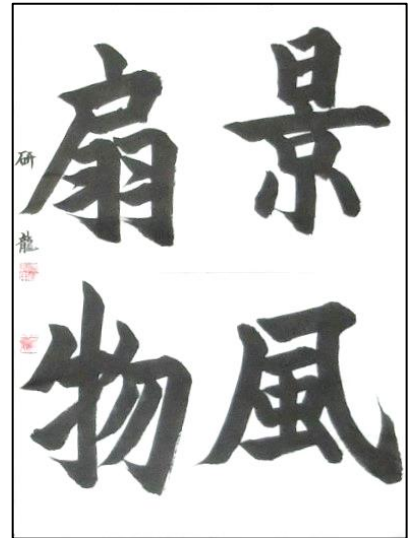 景風
扇物
研龍